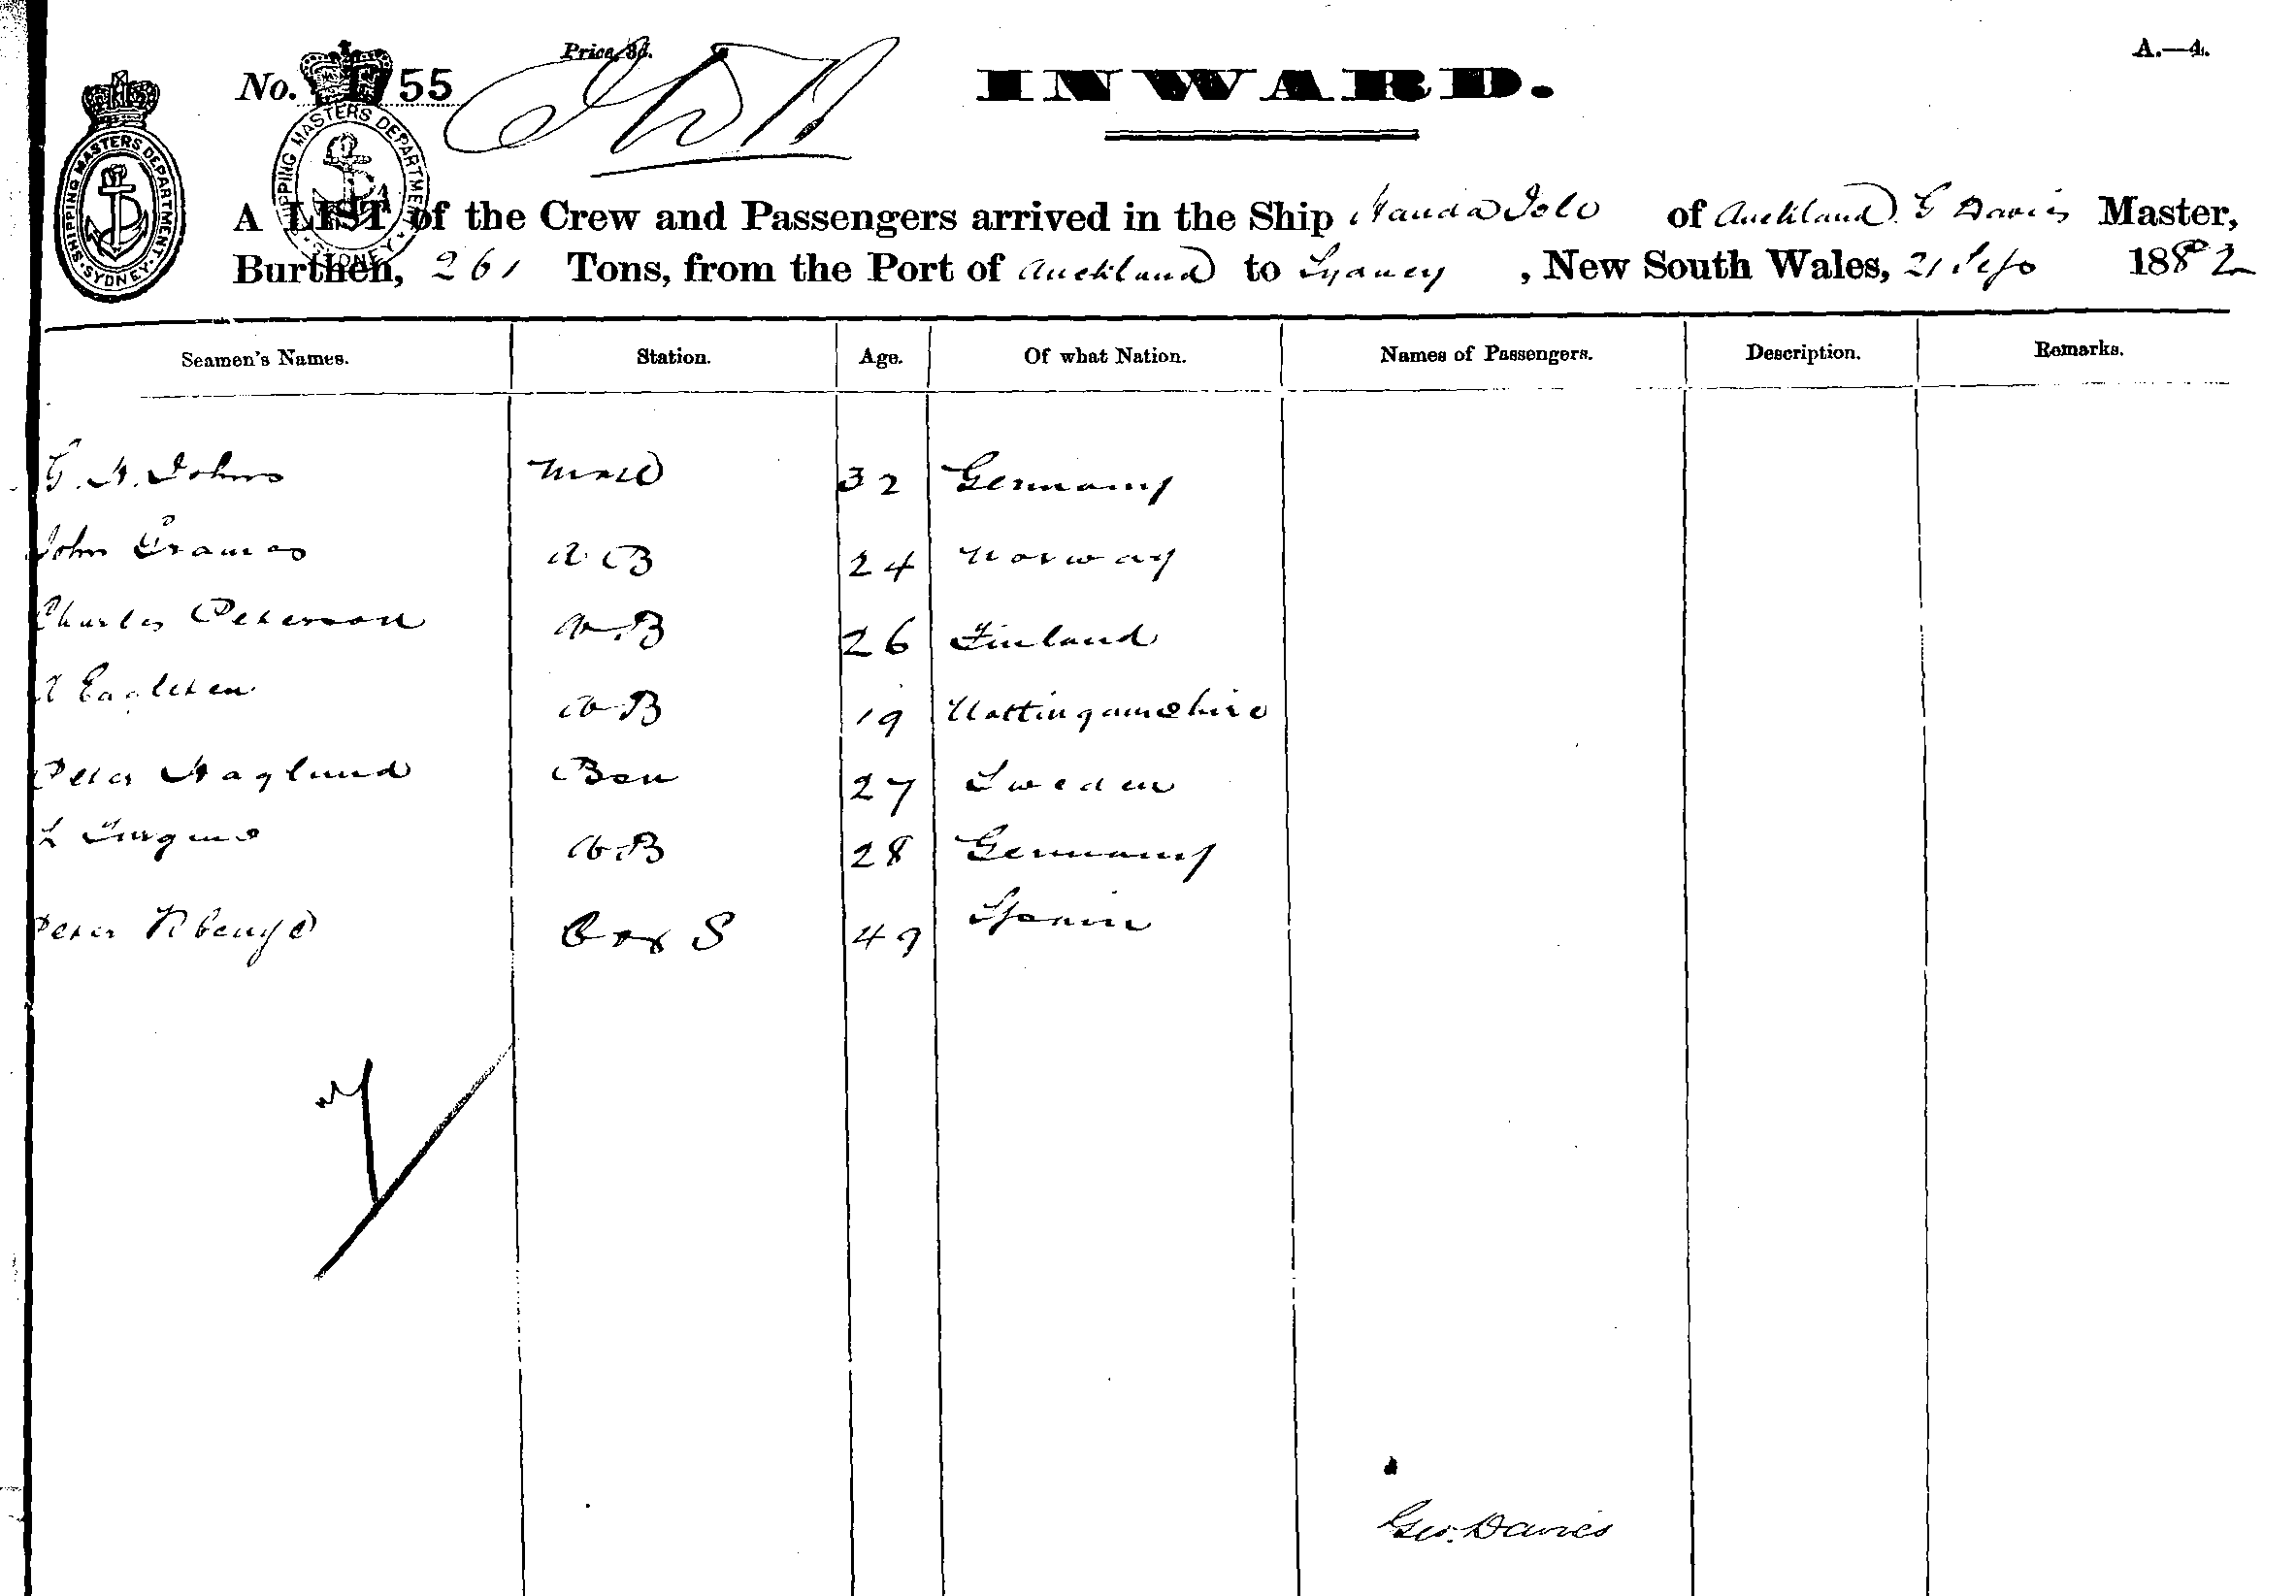 A.—4.
Price, 3d.
No. 55
INWARD.
SHIPPING MASTERS DEPARTMENT SYDNEY
SHIPPING MASTERS DEPARTMENT SYDNEY
A LIST of the Crew and Passengers arrived in the Ship of Auckland G Davis Master,
Burthen, 261 Tons, from the Port of Auckland to Sydney , New South Wales, 21 Sep 1882
Seamen's Names. Station. Age. Of what Nation. Names of Passengers. Description. Remarks.
G. H. Johns 32 Germany
John A B 24 Norway
Charles Peterson A.B 26 Finland
A B 19 Nottingamshire
Peter Haglund 27 Sweden
L A.B 28 Germany
Peter S 49 Spain
Geo. Davies